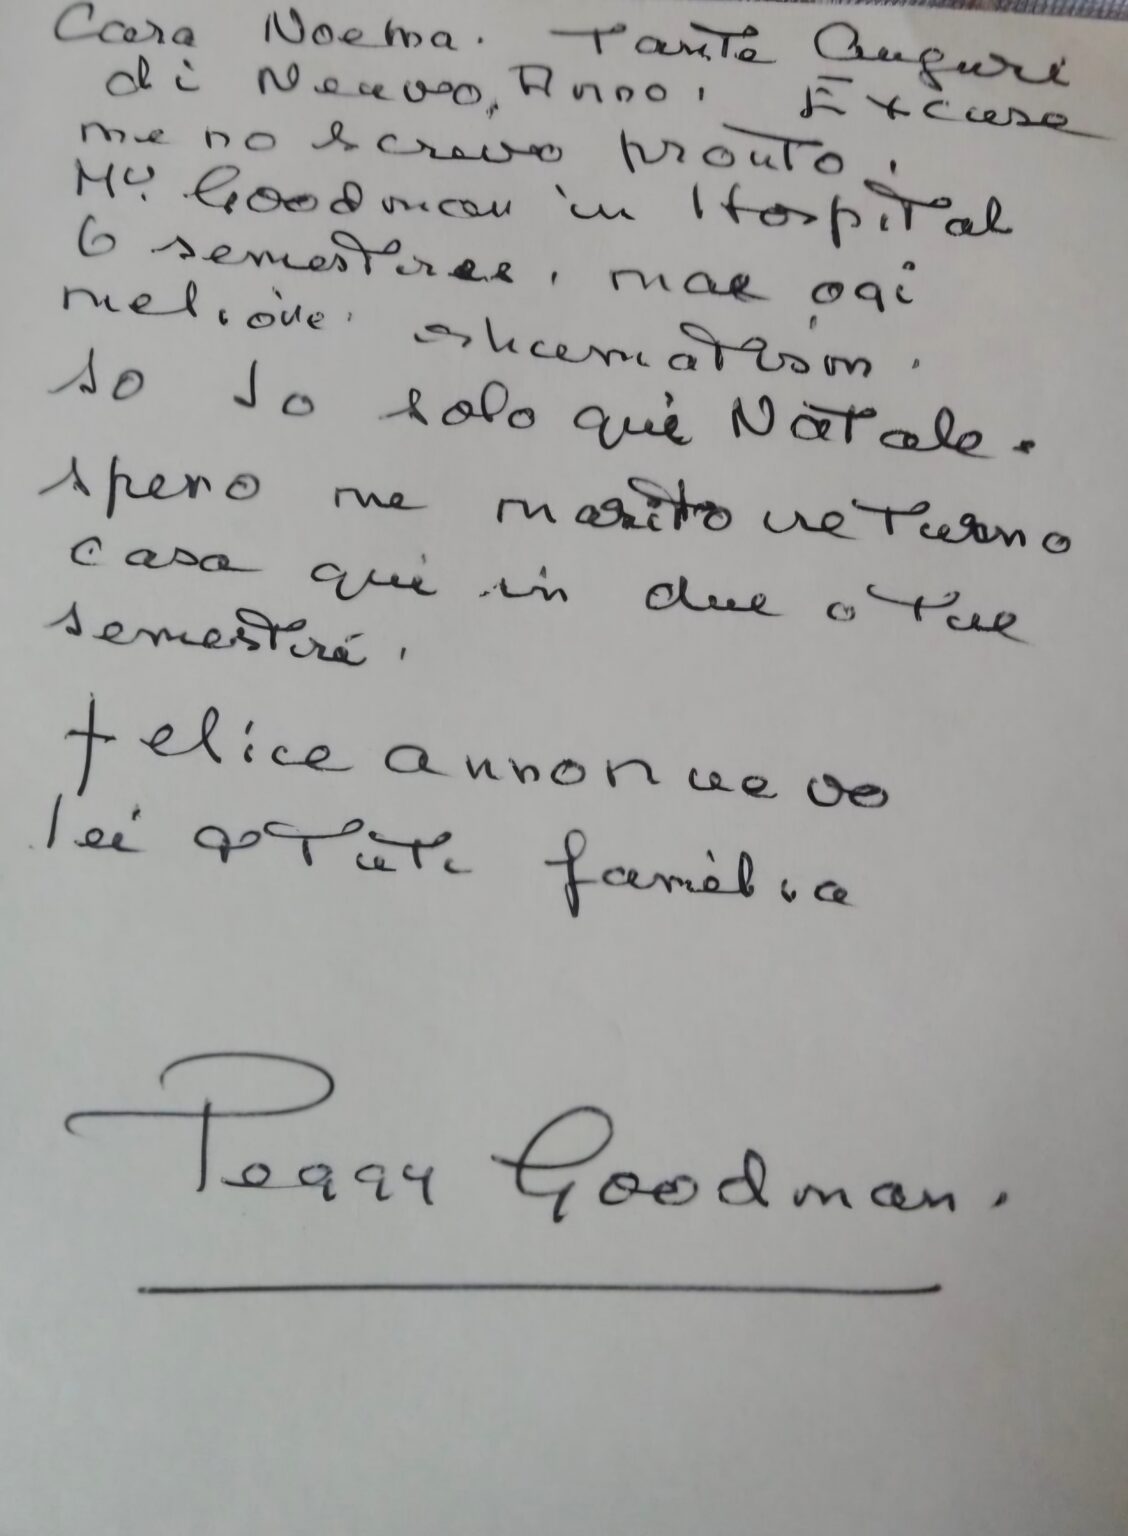 Cara Noema. Tante Auguri
di Neuvo, Anno. Excuse
me no screvo pronto.
Mr. Goodman in Hospital
6 semestree, mae ogi
meliore. rheumatism.
so Io solo qui Natale.
spero me marito returno
casa qui in due o tre
semestré.
felice anno nuevo
lei e tute famélia
Peggy Goodman.